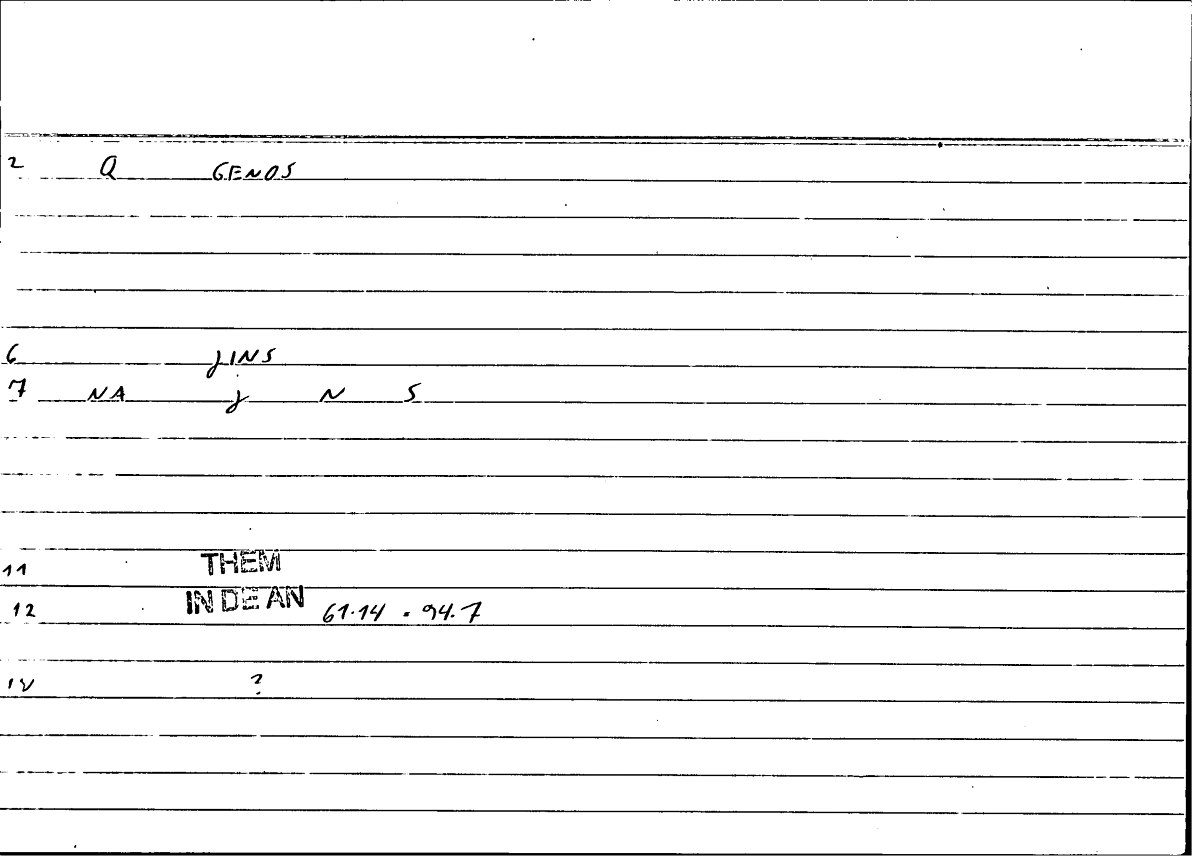 2 Q GENOS
6 JINS
7 NA J N S
11 THEM
12 IN DE AN 61.14 = 94.7
14 ?